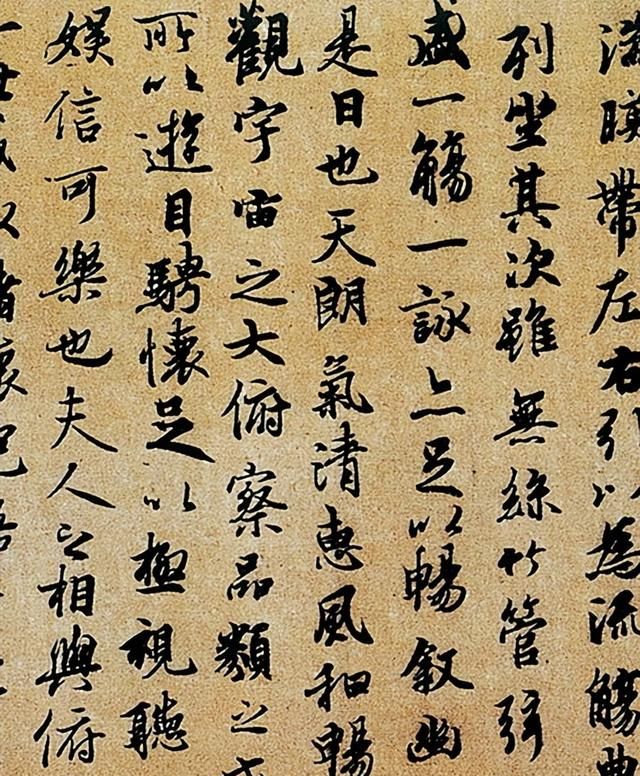 湍暎帶左右引以為流觴曲
列坐其次雖無絲竹管弦
盛一觴一詠亦足以暢敘幽
是日也天朗氣清惠風和暢
觀宇宙之大俯察品類之盛
所以遊目騁懷足以極視聽
娛信可樂也夫人之相與俯
一世或取諸懷抱悟言